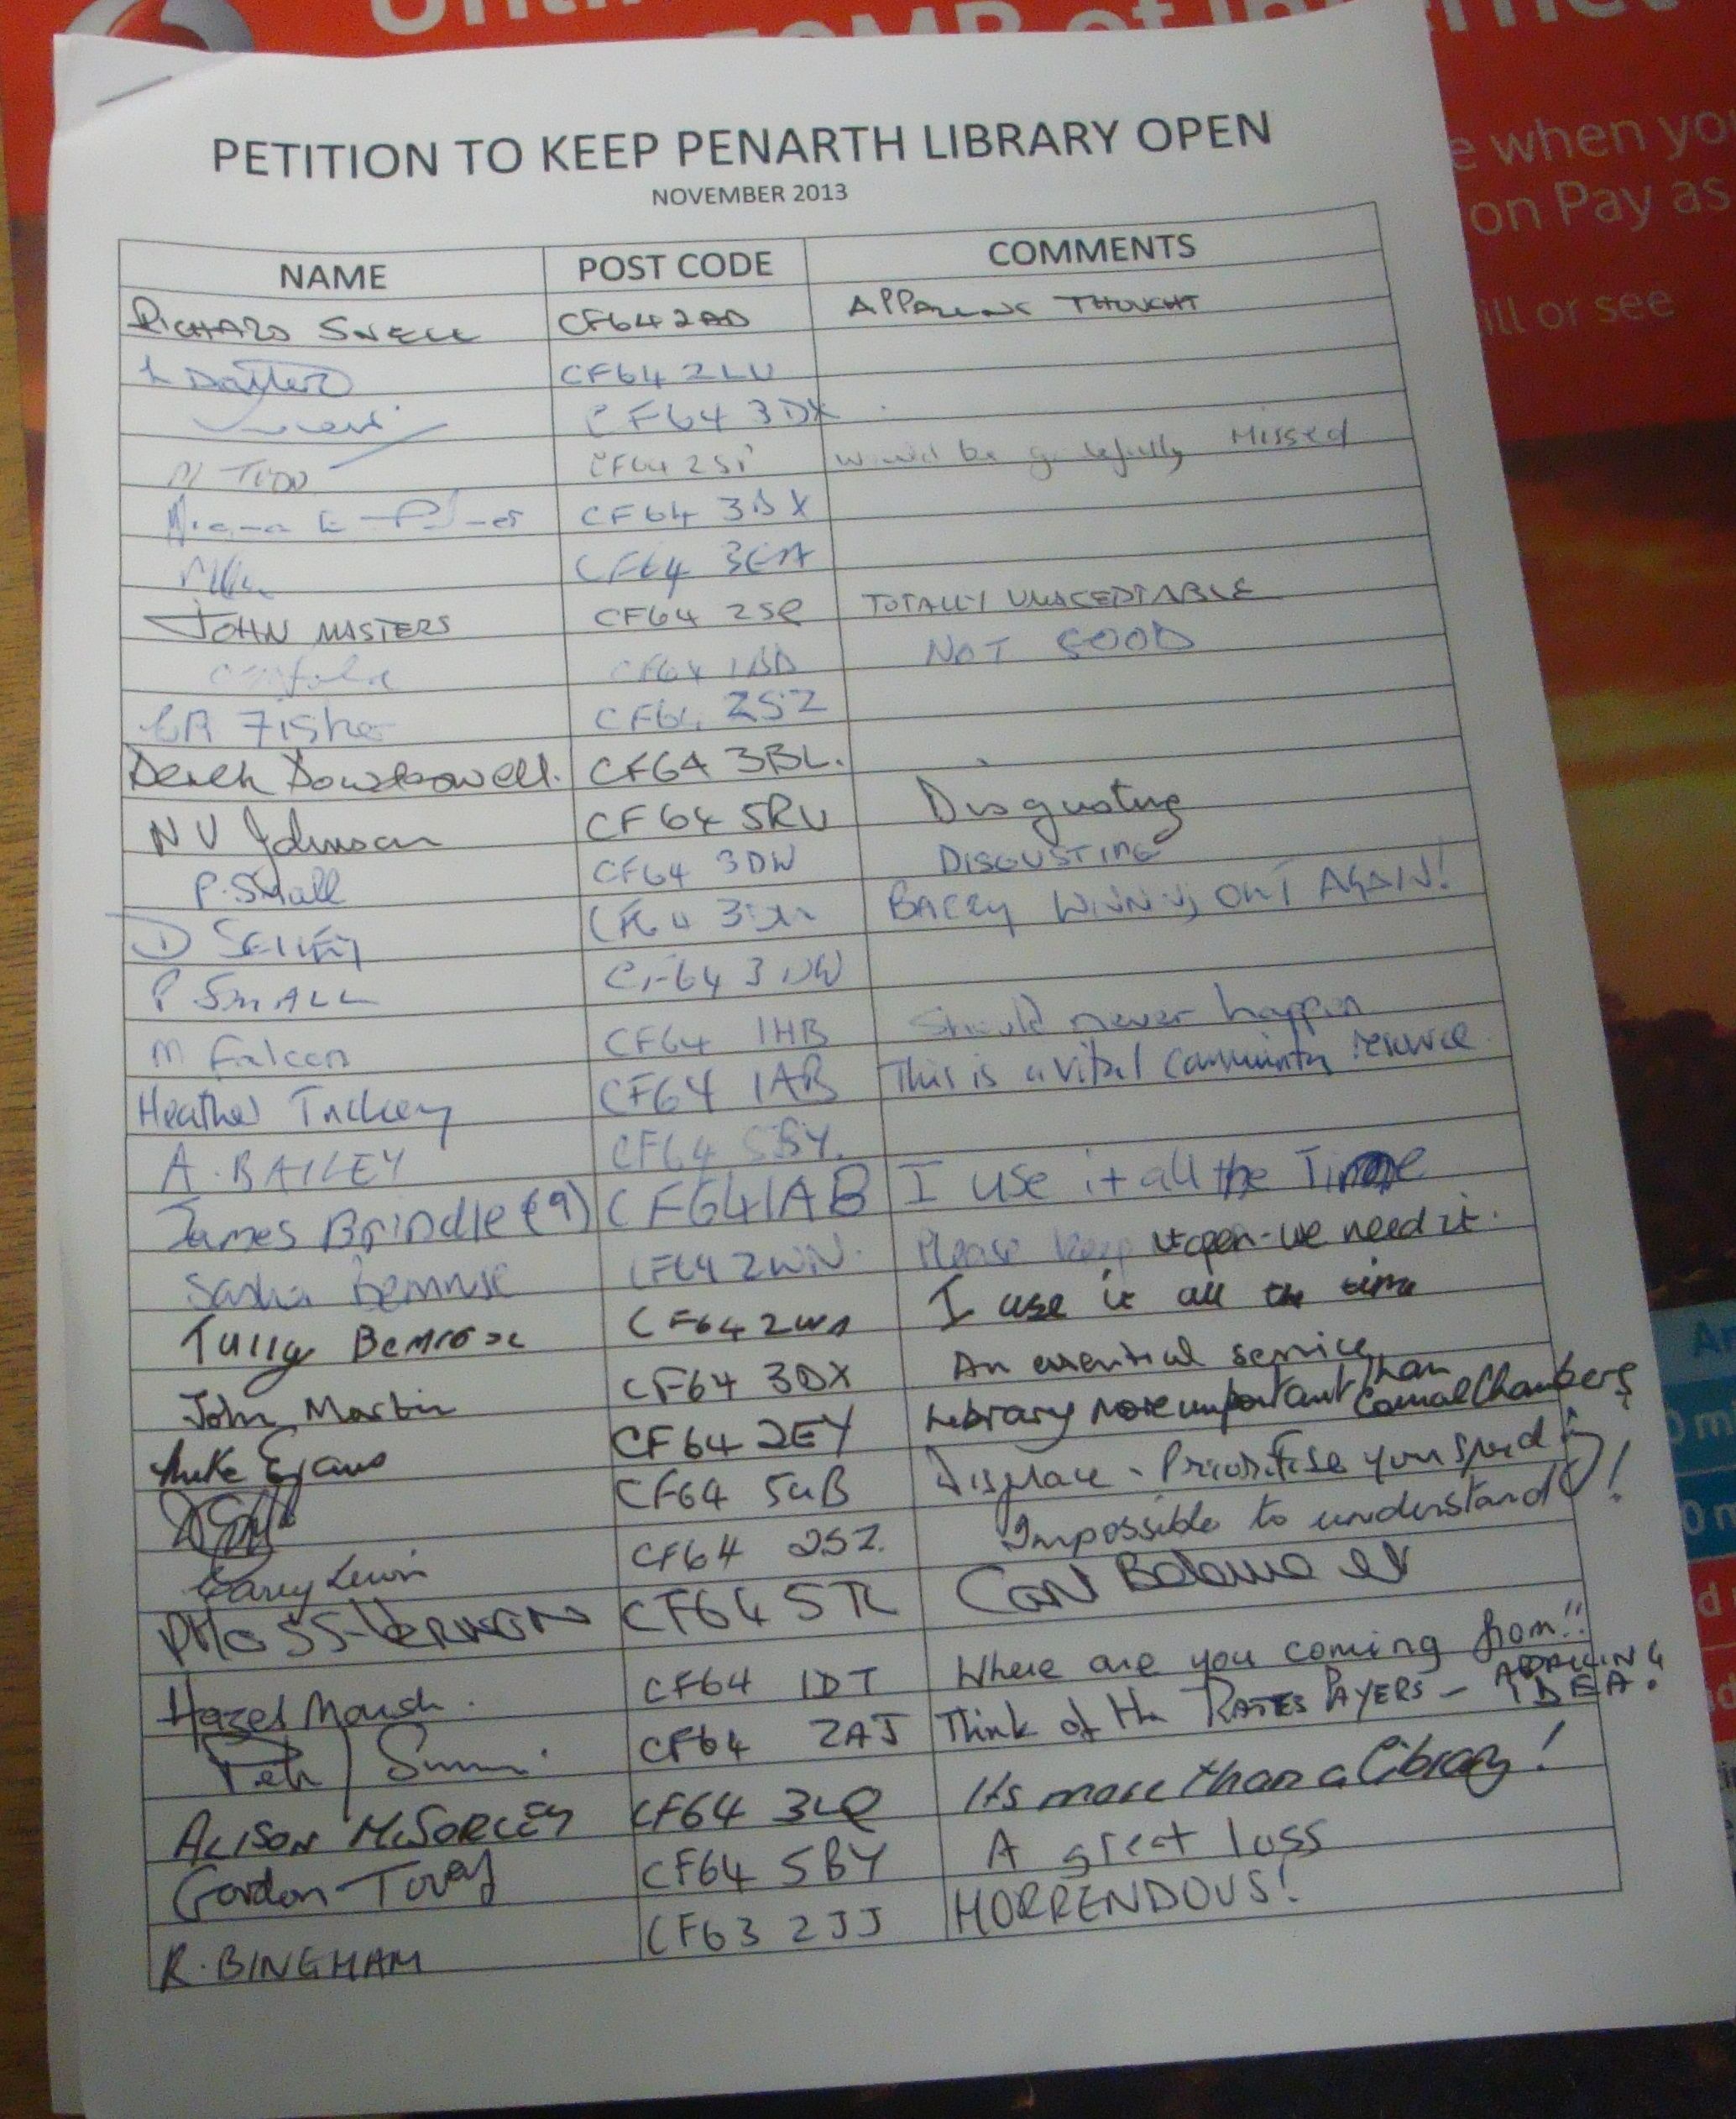 50MB of Internet
e when yo
on Pay as
ill or see
PETITION TO KEEP PENARTH LIBRARY OPEN
NOVEMBER 2013
NAME POST CODE COMMENTS
RICHARD SNELL CF64 2AD APPALLING THOUGHT
CF64 2LU
CF64 3DX
CF64 would be missed
CF64 3BX
CF64
JOHN MASTERS CF64 2SQ TOTALLY UNACEPTABLE
CF64 1BD NOT GOOD
Fisher CF64 2SZ
Derek CF64 3BL.
N V Johnson CF64 5RU Disgusting
P. Small CF64 3DW DISGUSTING
D CF64 BARRY WINNING OUT AGAIN!
P SMALL CF64 3DW
M Falcon CF64 1HB Should never happen
Heather Tuckey CF64 1AB This is a vital community resource.
A. BAILEY CF64 5BY.
James Brindle (9) CF64 1AB I use it all the Time
Sasha Bemrose CF64 2WN. Please keep it open - we need it.
Tully Bemrose CF64 2WN I use it all the time
John Martin CF64 3DX An essential service
Evans CF64 2EY Library more important than Council Chambers
CF64 5UB Prioritise your spending!
Lewis CF64 2SZ. Impossible to understand!
MOSS-VERNON CF64
Hazel Marsh. CF64 1DT Where are you coming from!!
CF64 2AJ Think of the RATES PAYERS - APPALLING IDEA!
ALISON McSORLEY CF64 3LQ Its more than a library!
Gordon Tovey CF64 5BY A great loss
R. BINGHAM CF63 2JJ HORRENDOUS!